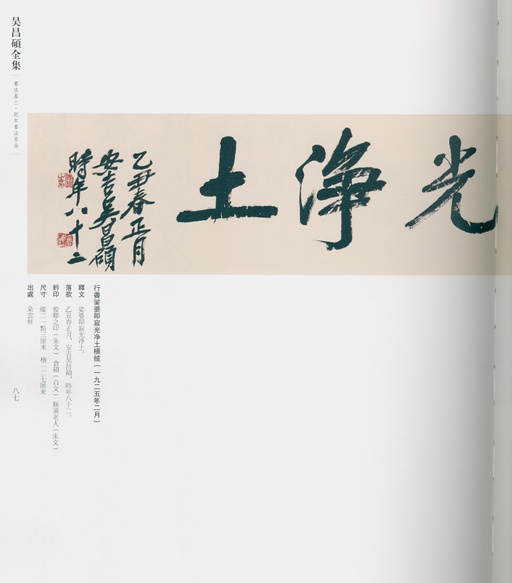 吴昌碩全集
書法卷三·紀年書法作品
光淨土
乙丑春正月
安吉吳昌碩
時年八十二
行書娑婆即寂光净土横披(一九二五年二月)
釋文 娑婆即寂光净土。
落款 乙丑春正月,安吉吴昌碩,時年八十二。
鈐印 俊卿之印(朱文) 倉碩(白文)
尺寸
出處 朵雲軒
八七